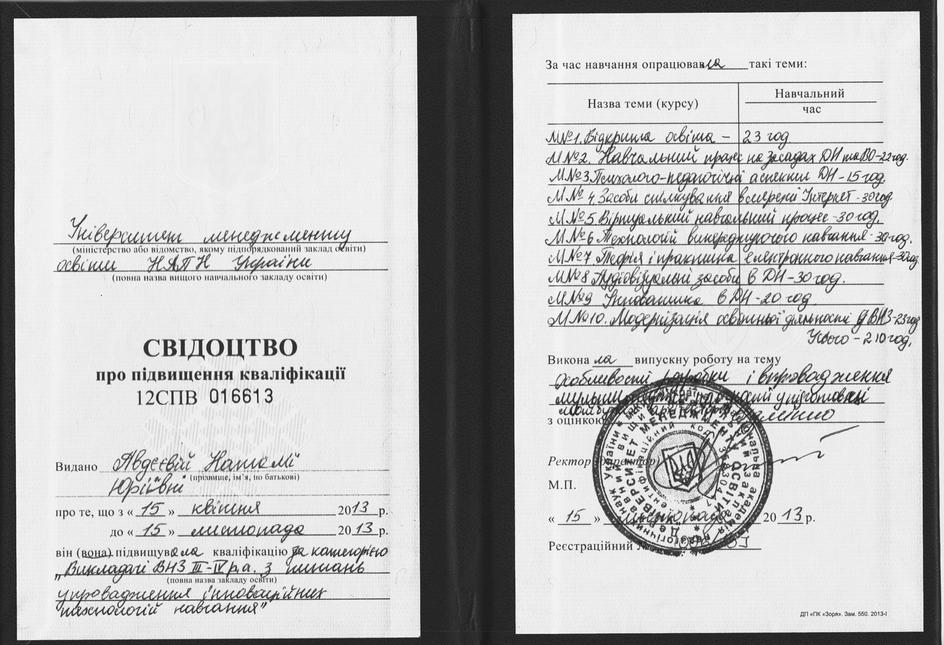 Університет менеджменту
(міністерство або відомство, якому підпорядкований заклад освіти)
освіти НАПН України
(повна назва вищого навчального закладу освіти)
СВІДОЦТВО
про підвищення кваліфікації
12СПВ 016613
Видано Авдєєвій Наталі
(прізвище, ім’я, по батькові)
Юріївні
про те, що з « 15 » квітня 2013 р.
до « 15 » листопада 2013 р.
він (вона) підвищувала кваліфікацію за категорією
„Викладачі ВНЗ III-IV р.а. з питань
(повна назва закладу освіти)
упровадження інноваційних
технологій навчання"
За час навчання опрацювала такі теми:
Назва теми (курсу) Навчальний
час
М№1. Відкрита освіта - 23 год
М№2. Навчальний процес на засадах ДН та ВО-22год.
М№3. Психолого-педагогічні аспекти ДН-15 год.
М№4. Засоби спілкування в мережі Інтернет-30год
М№5 Віртуальний навчальний процес-30 год.
М№6 Технології випереджуючого навчання-30 год.
М№7 Теорія і практика електронного навчання-30год
М№8 Аудіовізуальні засоби в ДН-30 год.
М№9 Інноватика в ДН-20 год
М№10. Модернізація освітньої діяльності у ВНЗ-23год
Усього-210 год.
Виконала випускну роботу на тему
Особливості розробки і впровадження
у підготовці
з оцінкою
Ректор
М.П.
« 15 » листопада 2013 р.
Реєстраційний №
ДП «ПК «Зоря». Зам. 550. 2013-І